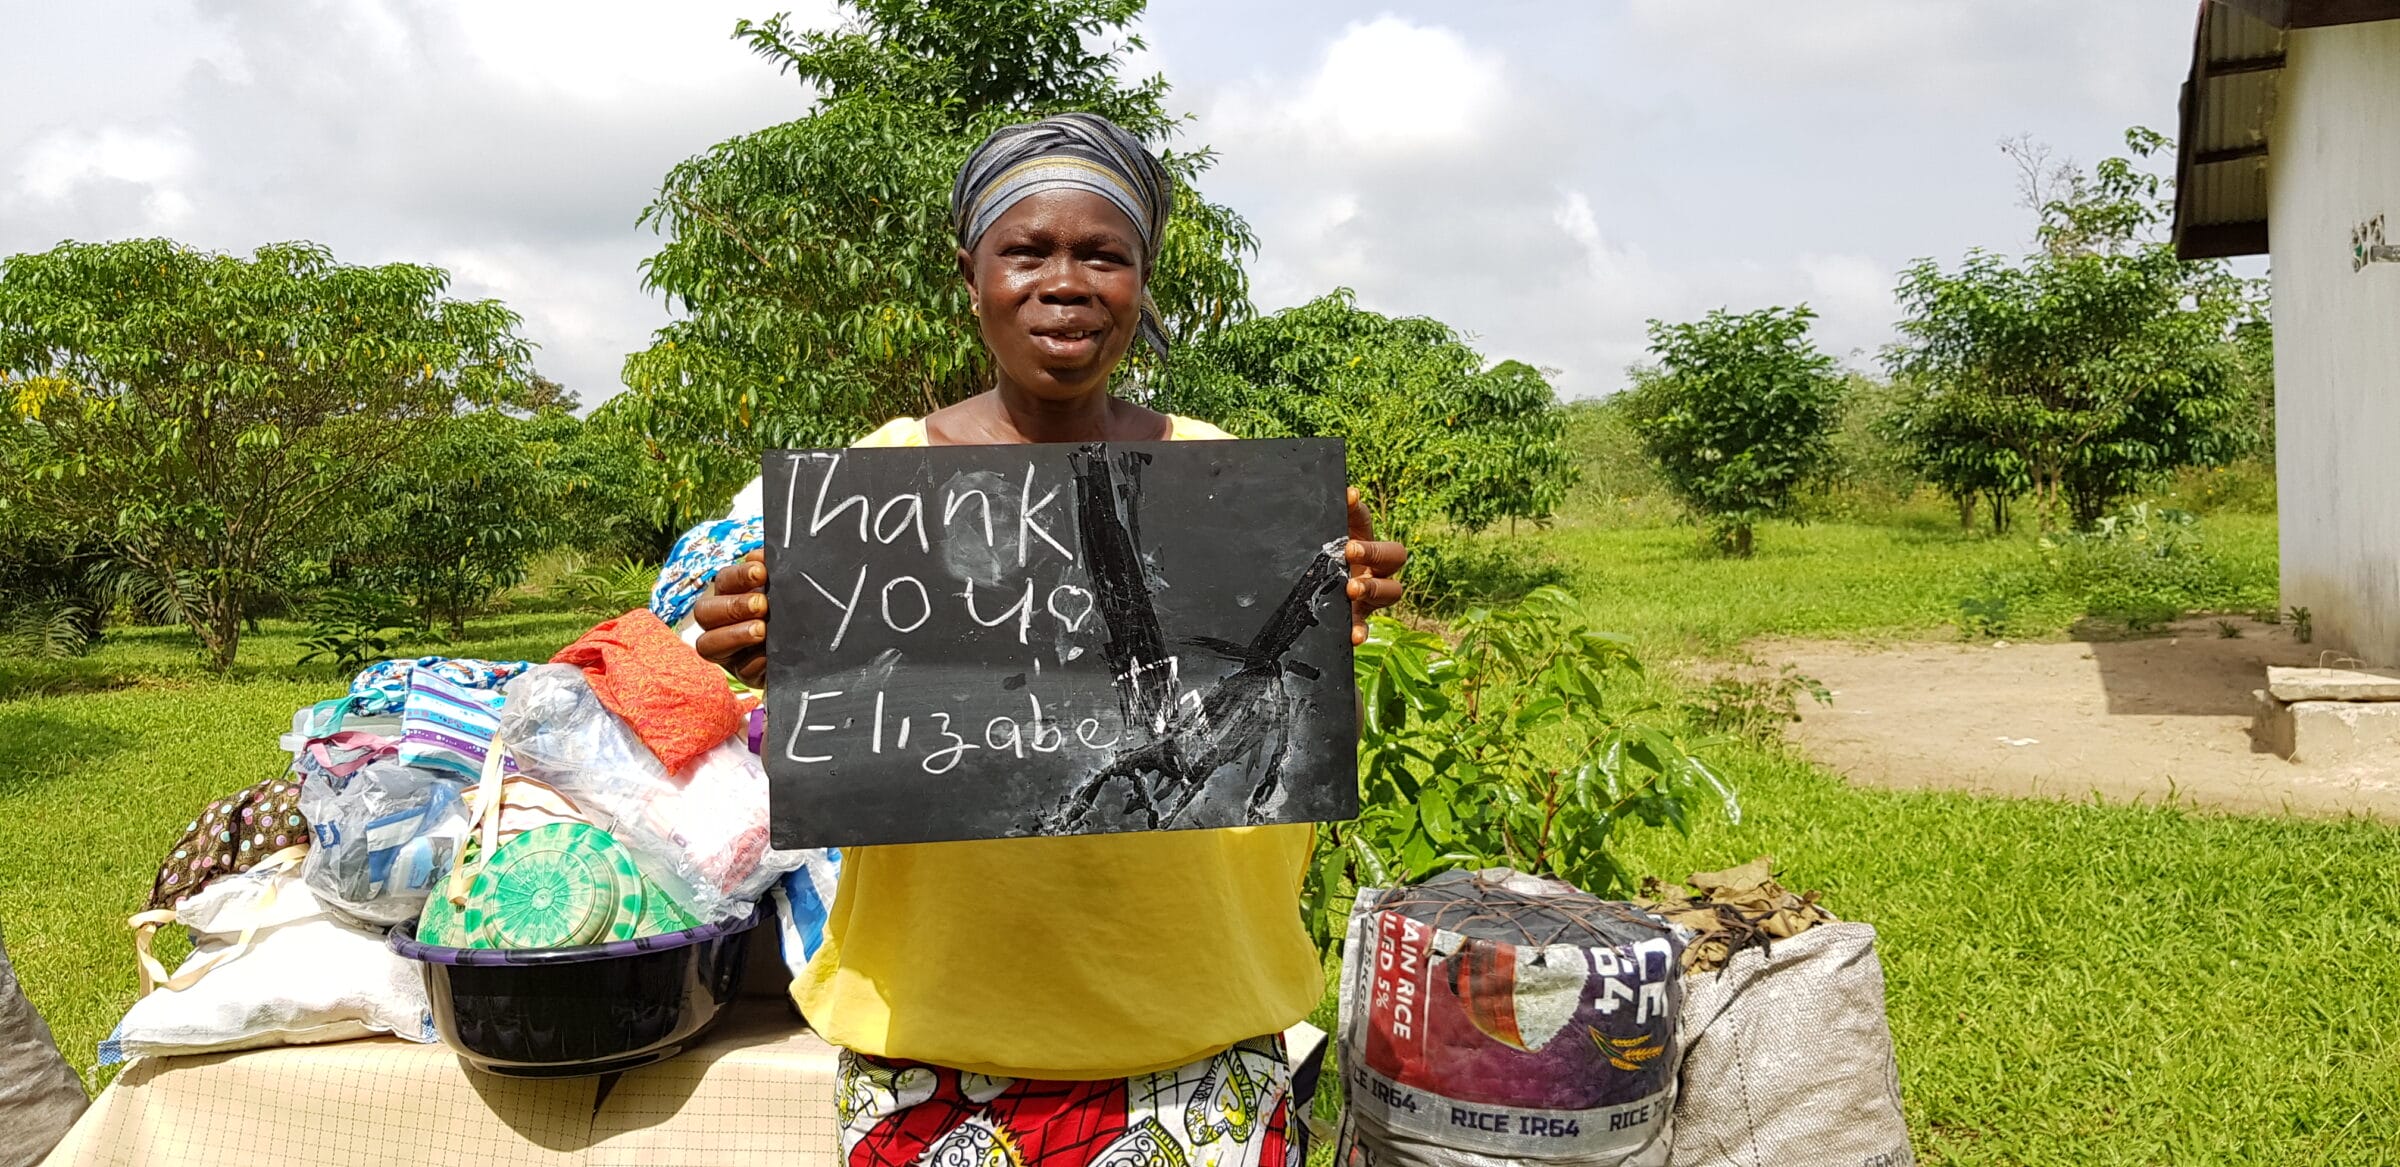 Thank
you
Elizabe
AIN RICE
ILED 5%
CE
64
CE IR64
RICE IR64
RICE